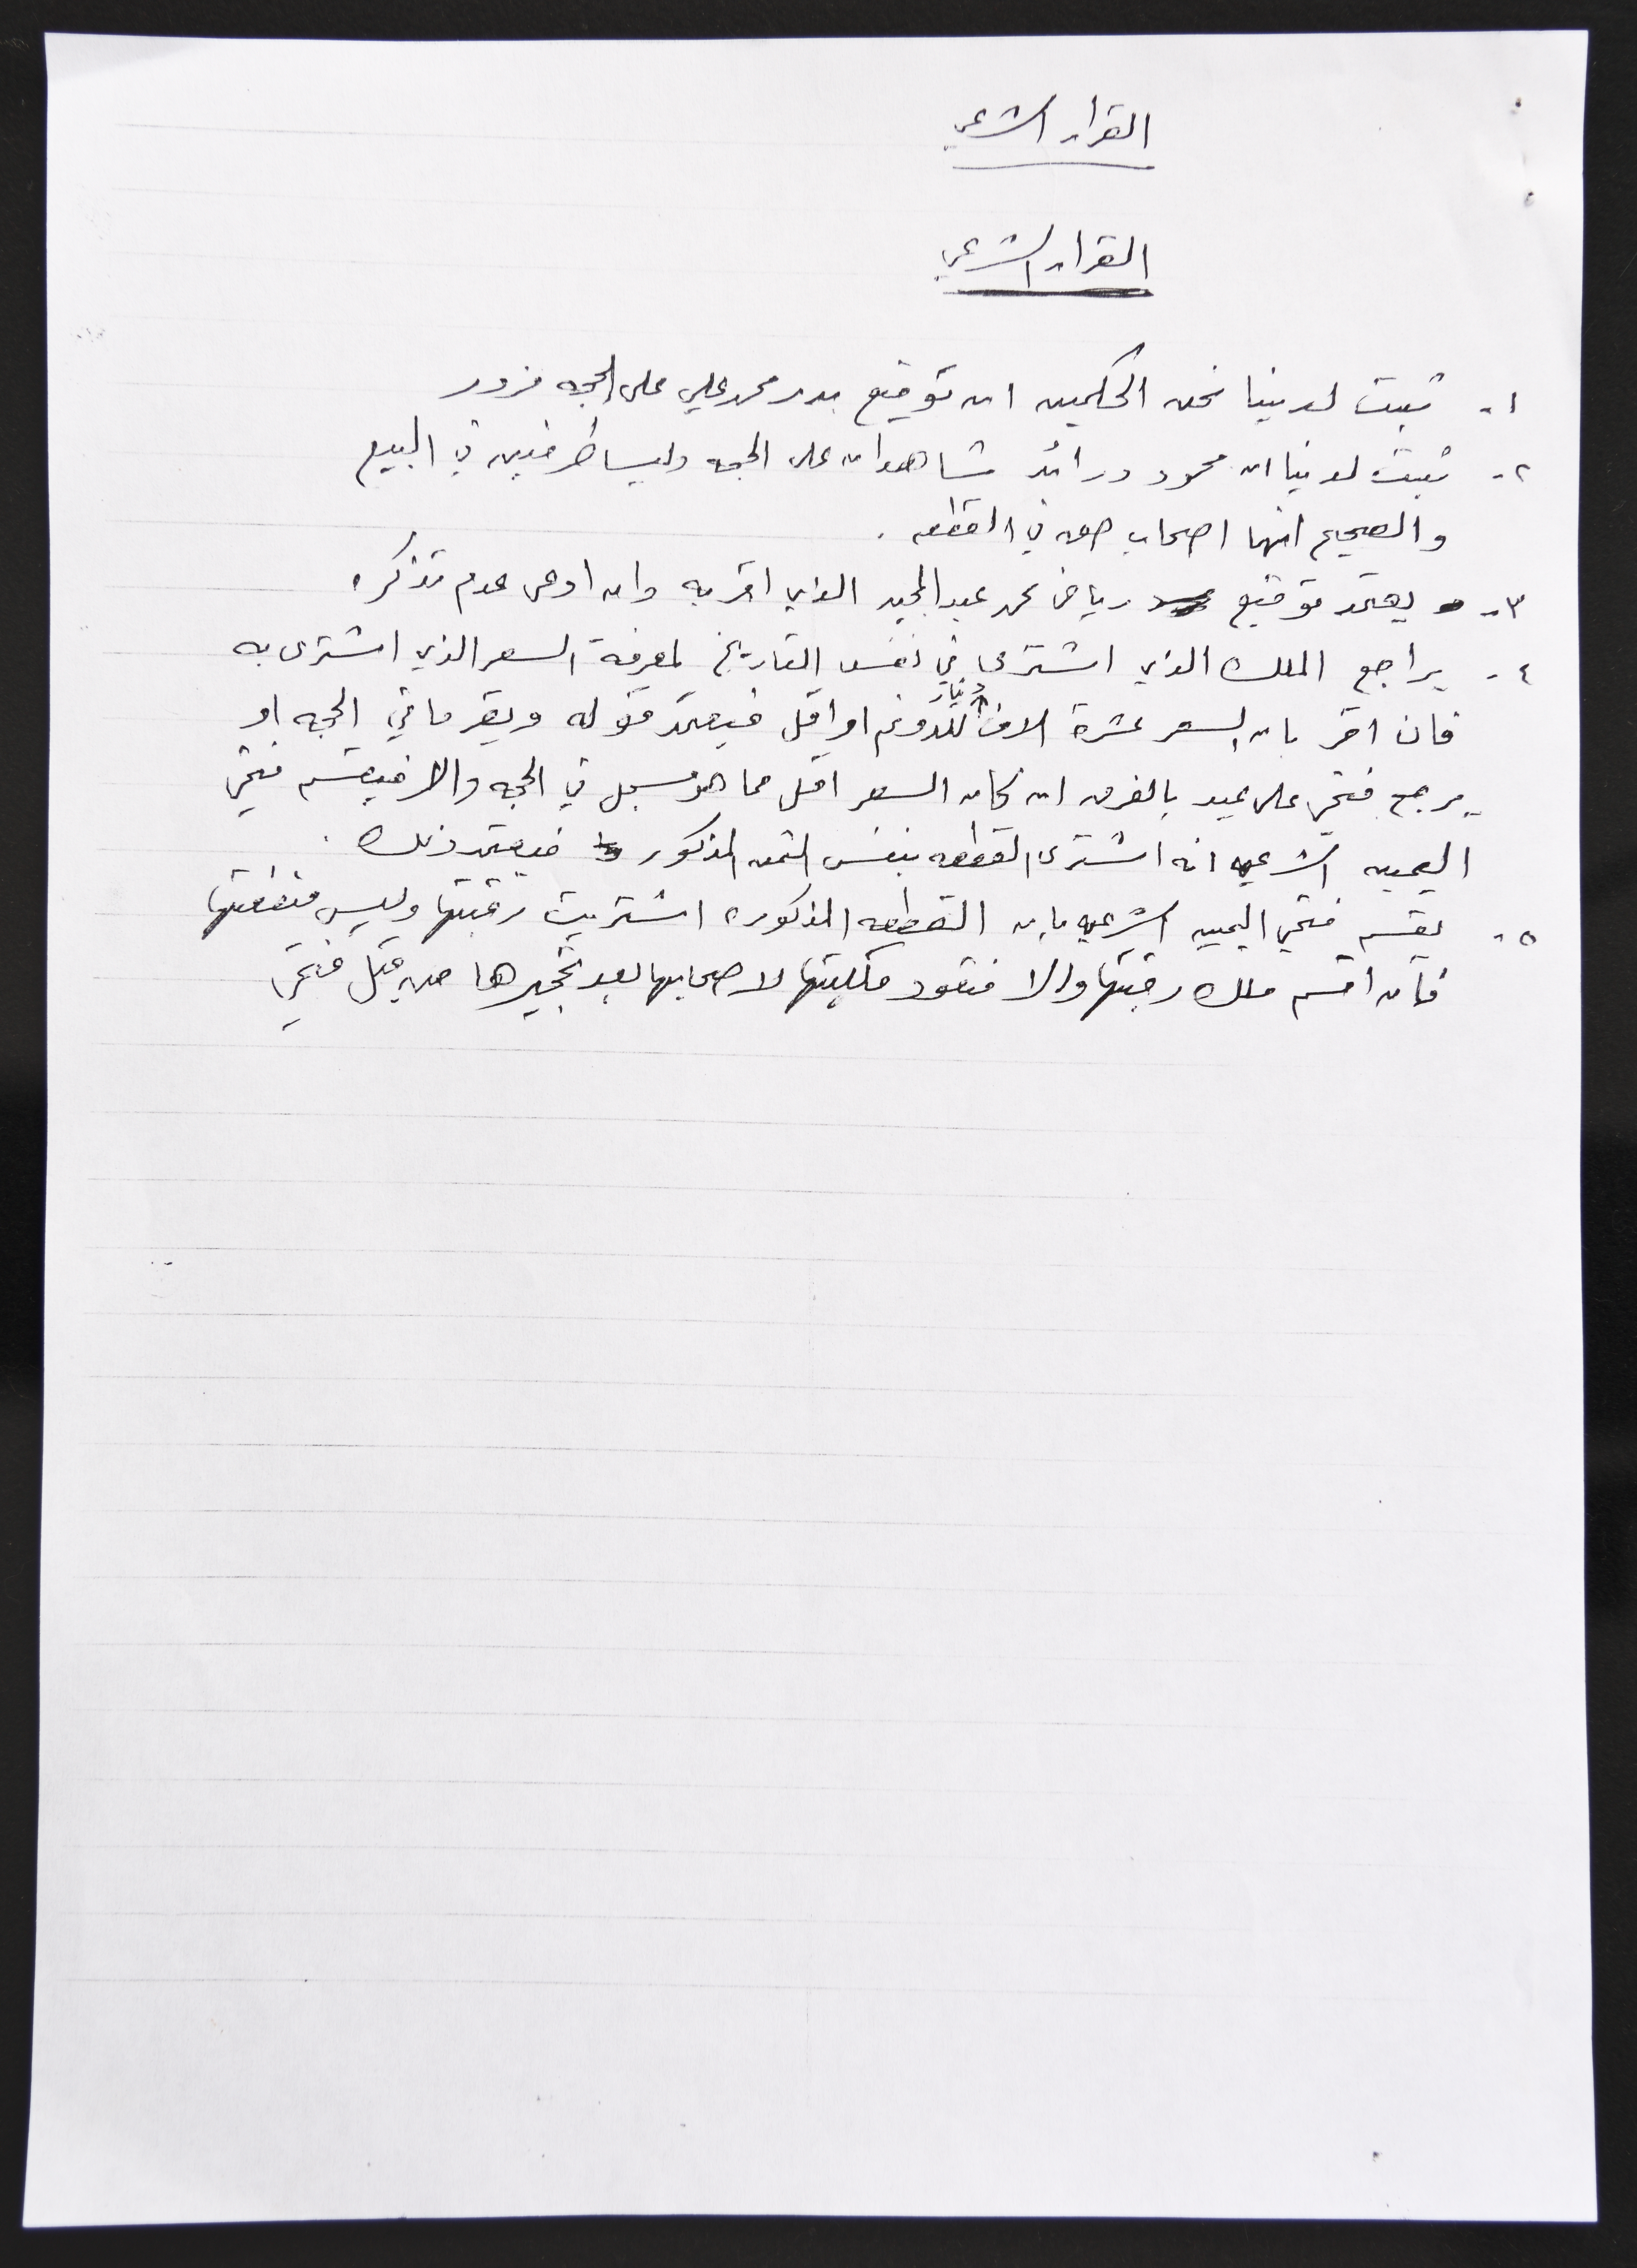 القرار الشرعي
القرار الشرعي
١- ثبت لدينا نحن المحكمين ان توقيع بدر محمد علي على الحجه مزور
٢- ثبت لدينا ان محمود ورائد شاهدان على الحجه وليسا طرفين في البيع
والصحيح انهما اصحاب حق في القطعه .
٣- يعتمد توقيع رياض محمد عبد المجيد الذي اقر به وان ادعى عدم تذكره
٤- يراجع المالك الذي اشترى في نفس التاريخ لمعرفة السعر الذي اشترى به
فان اقر بان السعر عشرة الاف دينار للدونم او اقل فيعتمد قوله ويقر ما في الحجه او
يرجع فتحي على عيد بالفرق ان كان السعر اقل مما هو مسجل في الحجه والا فيقسم فتحي
اليمين الشرعيه انه اشترى القطعه بنفس الثمن المذكور فيعتمد ذلك .
٥- يقسم فتحي اليمين الشرعيه بان القطعه المذكوره اشتريت رقبتها وليس منفعتها
فان اقسم ملك رقبتها والا فتعود ملكيتها لاصحابها بعد تحجيرها من قبل فتحي